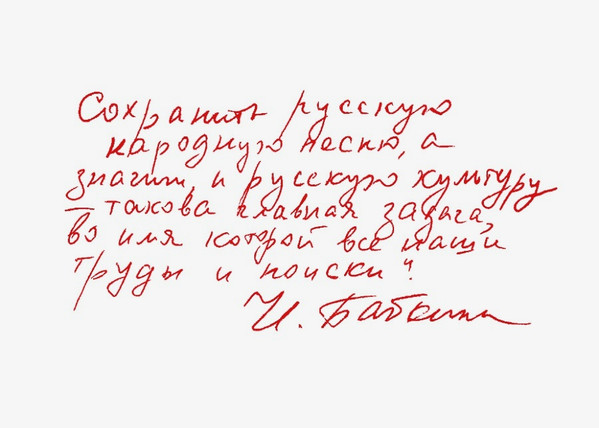 Сохранить русскую
народную песню, а
значит, и русскую культуру
– такова главная задача,
во имя которой все наши
труды и поиски".
Н. Бабкина